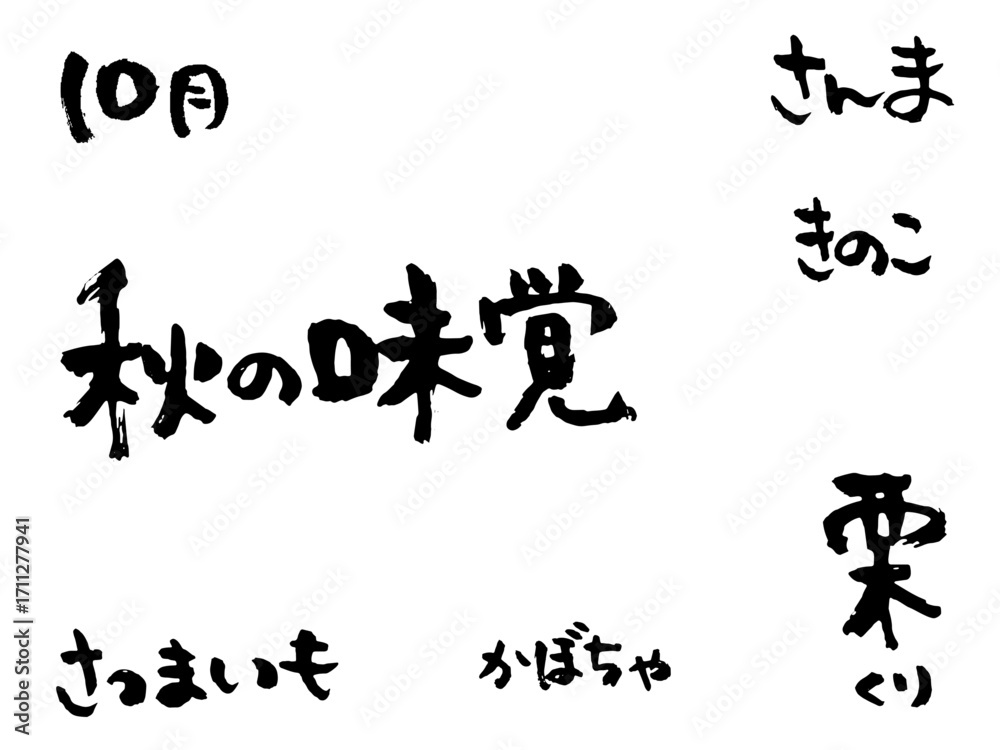 10月
さんま
きのこ
秋の味覚
栗
くり
さつまいも
かぼちゃ
Adobe Stock | #1711277941